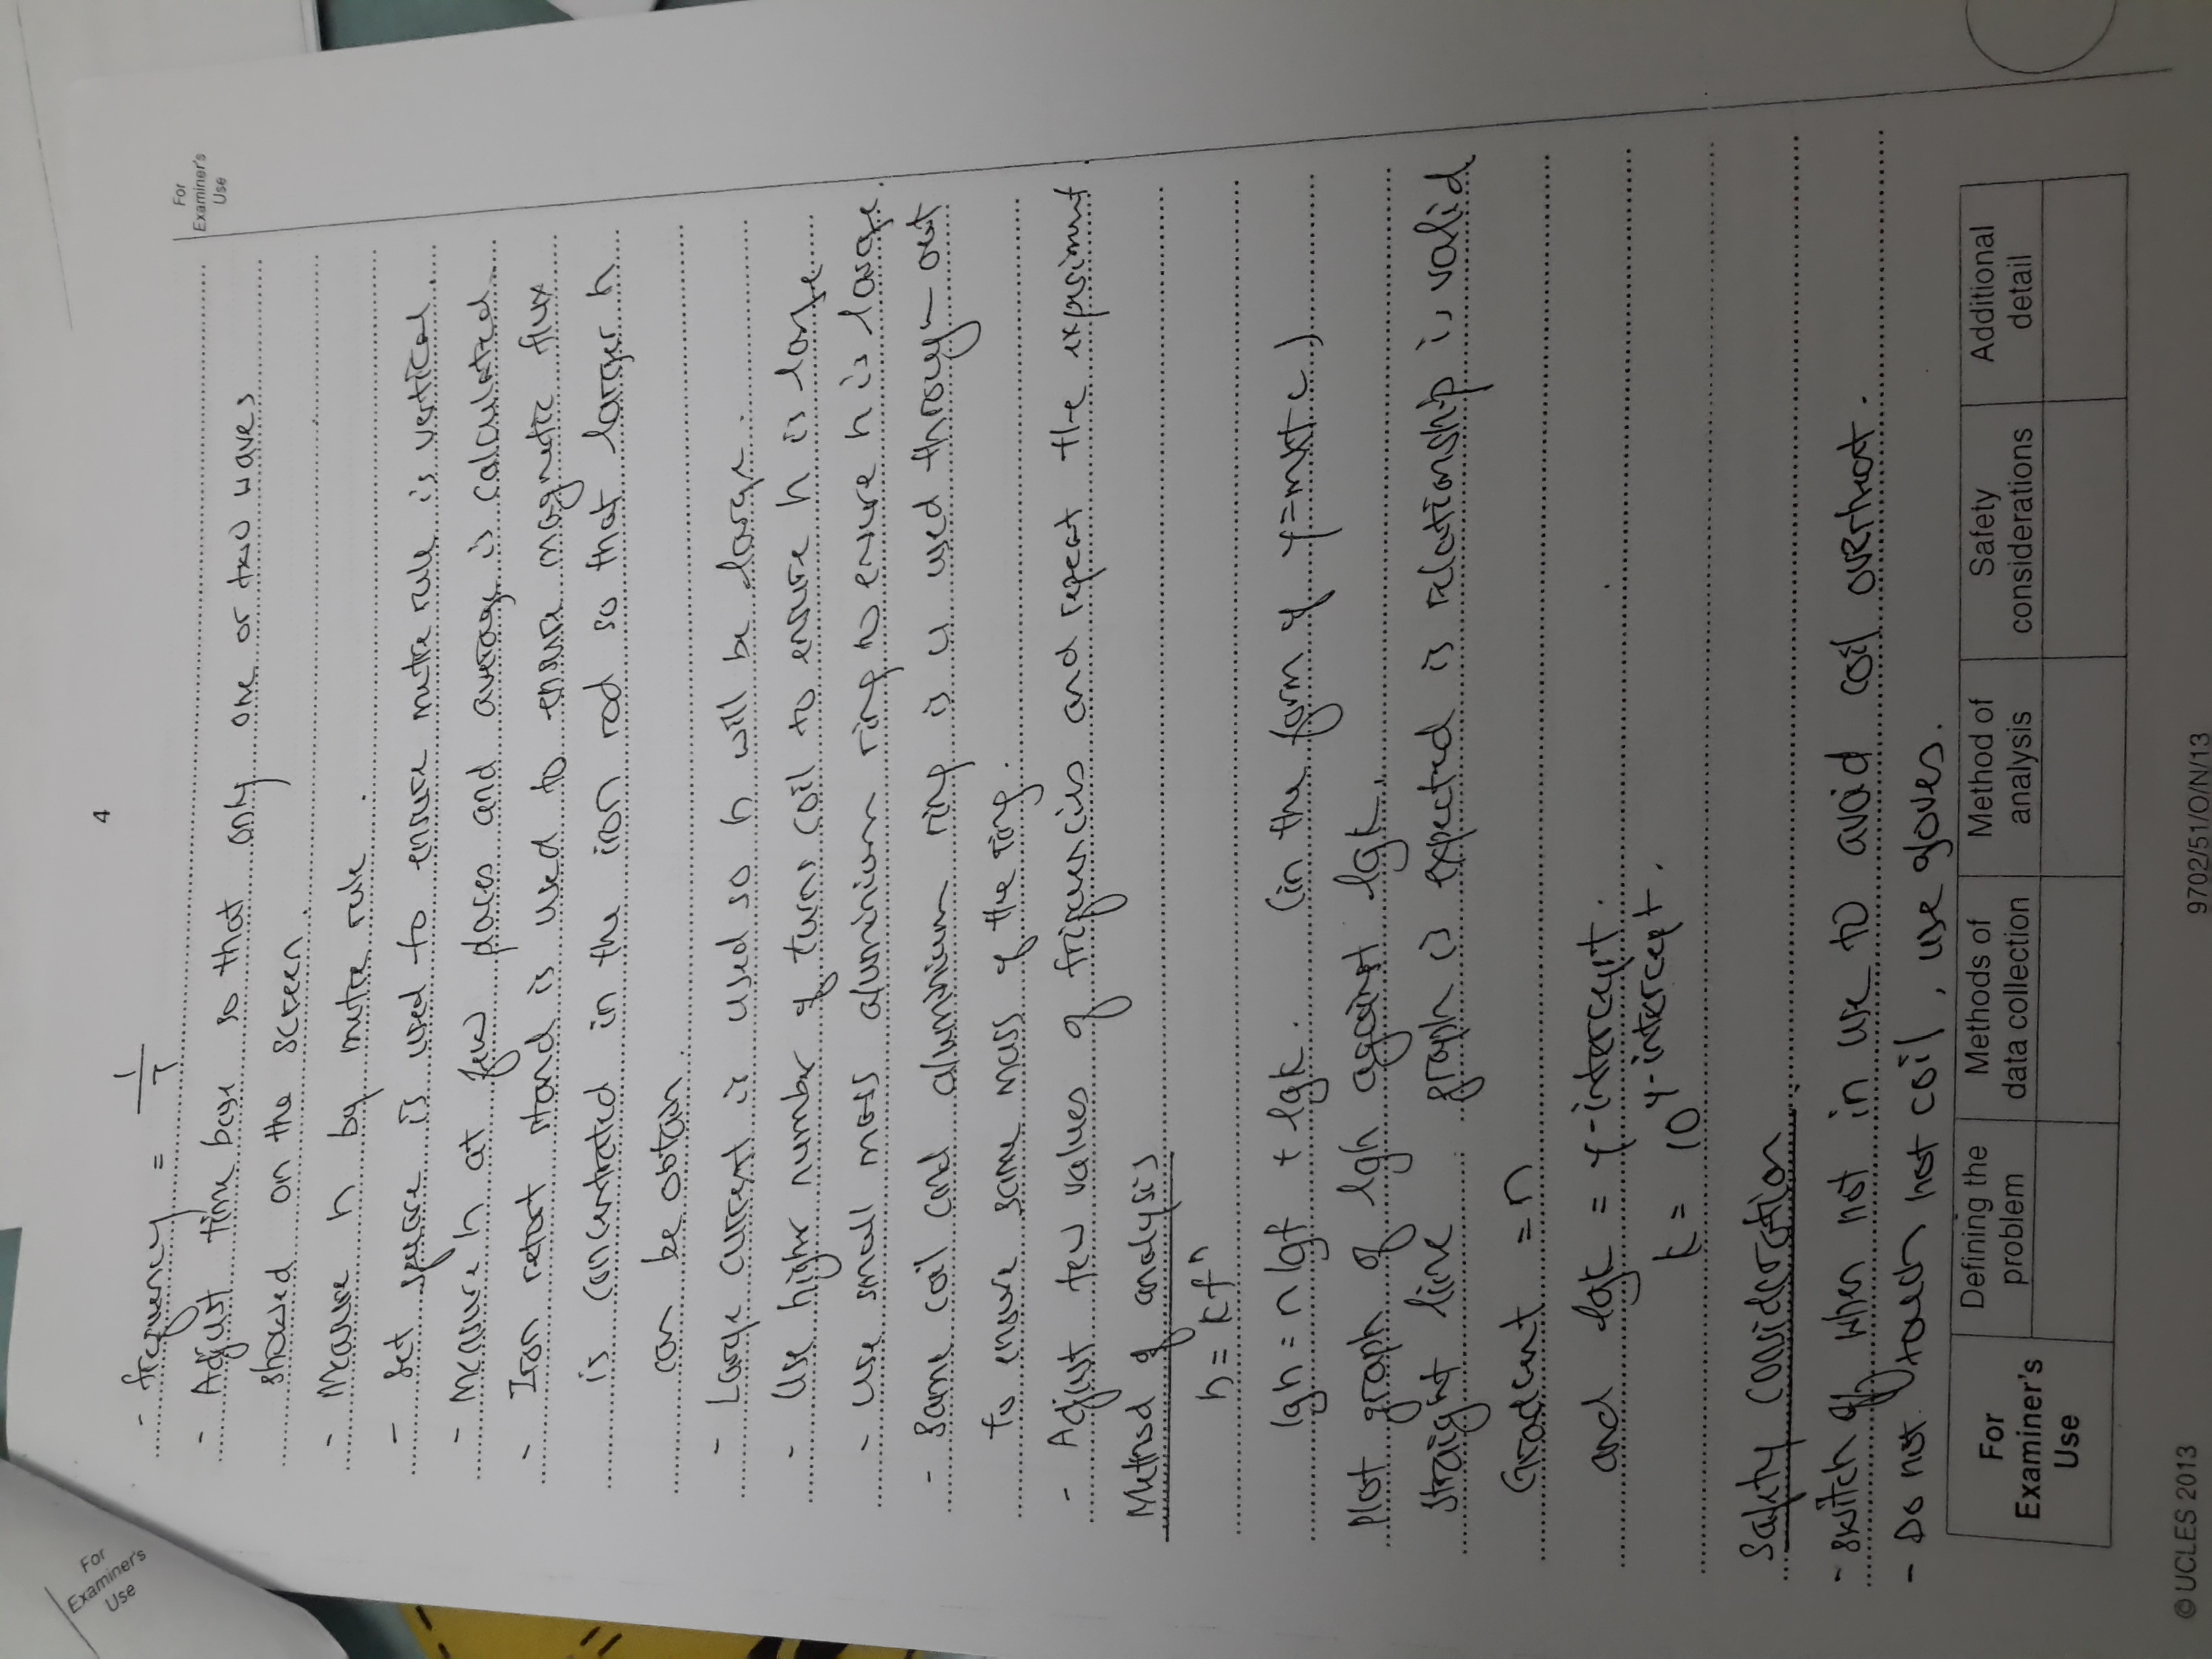 For
Examiner's
Use
4
For
Examiner's
Use
- frequency = 1/T
- Adjust time base so that only one or two waves
showed on the screen.
- Measure h by metre rule.
- Set square is used to ensure metre rule is vertical.
- Measure h at few places and average is calculated.
- Iron retort stand is used to ensure magnetic flux
is concentrated in the iron rod so that larger h
can be obtain.
- Large current is used so h will be large.
- Use higher number of turns coil to ensure h is large
- Use small mass aluminium ring to ensure h is large.
- Same coil and aluminium ring is used through out
to ensure same mass of the ring.
- Adjust few values of frequencies and repeat the experiment.
Method of analysis
h = kf^n
lgh = nlgf + lgk. (in the form of y=mx+c)
Plot graph of lgh against lgk.
Straight line graph is expected is relationship is valid
Gradient = n
and lgk = y-intercept.
k = 10^y-intercept.
Safety consideration.
- switch off when not in use to avoid coil overheat.
- Do not touch hot coil, use gloves.
For Examiner's Use
Defining the problem
Methods of data collection
Method of analysis
Safety considerations
Additional detail
© UCLES 2013
9702/51/O/N/13